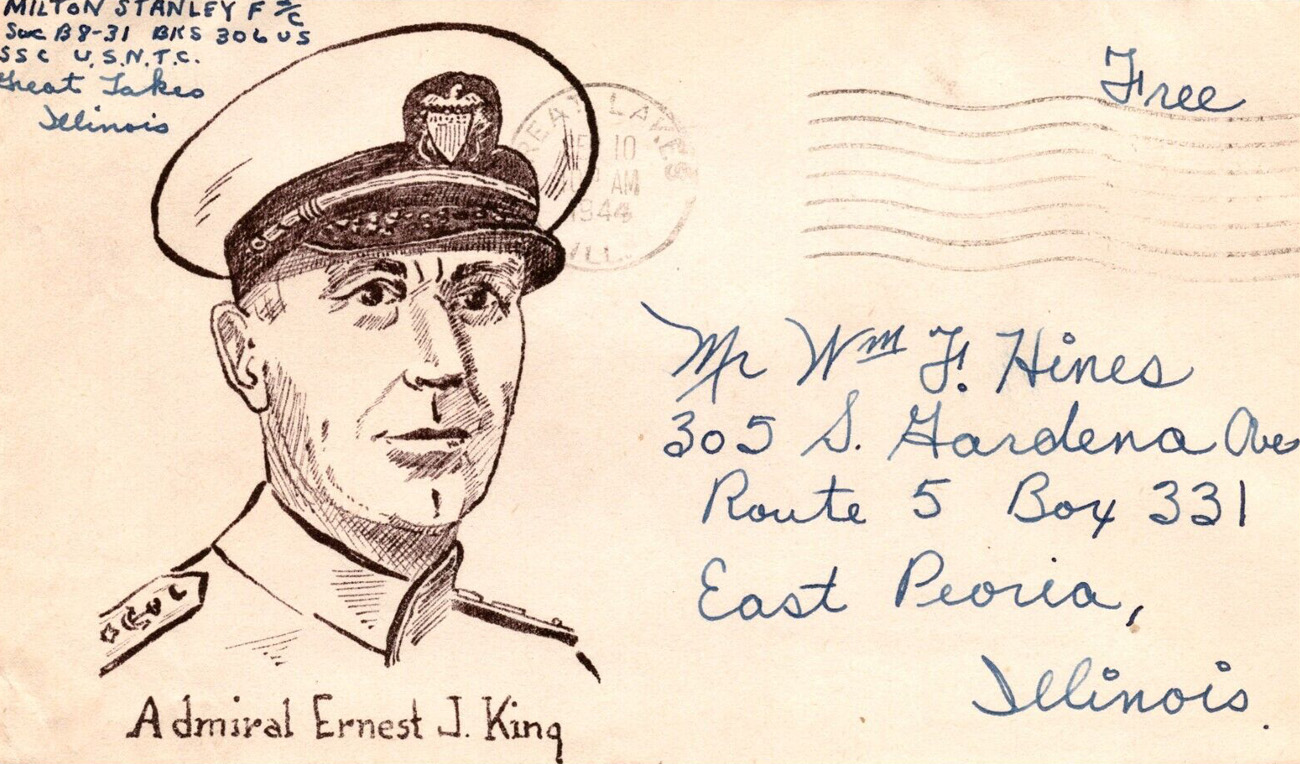 MILTON STANLEY F 2/C
Sec B8-31 BKS 306 US
SSC U.S.N.T.C.
Great Lakes
Illinois
Free
GREAT LAKES
10
AM
1944
ILL.
Mr Wm F. Hines
305 S. Gardena Ave
Route 5 Box 331
East Peoria,
Illinois.
Admiral Ernest J. King